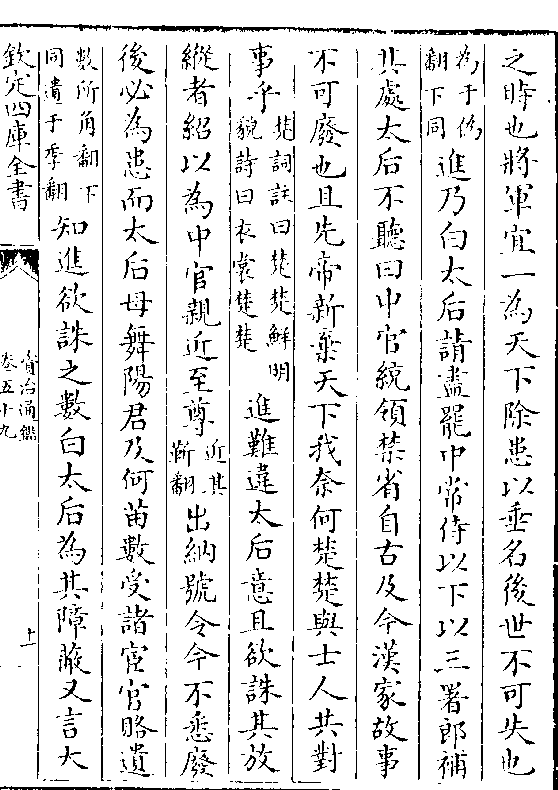 之時也將軍宜一為天下除患以垂名後世不可失也
為于偽翻下同進乃白太后請盡罷中常侍以下以三署郎補
其處太后不聽曰中官統領禁省自古及今漢家故事
不可廢也且先帝新棄天下我奈何楚楚與士人共對
事乎楚詞註曰楚楚鮮明貌詩曰衣裳楚楚進難違太后意且欲誅其放
縱者紹以為中官親近至尊近其靳翻出納號令今不悉廢
後必為患而太后母舞陽君及何苗數受諸宦官賂遺
數所角翻下同遺于季翻知進欲誅之數白太后為其障蔽又言大
欽定四庫全書
資治通鑑
卷五十九
十一